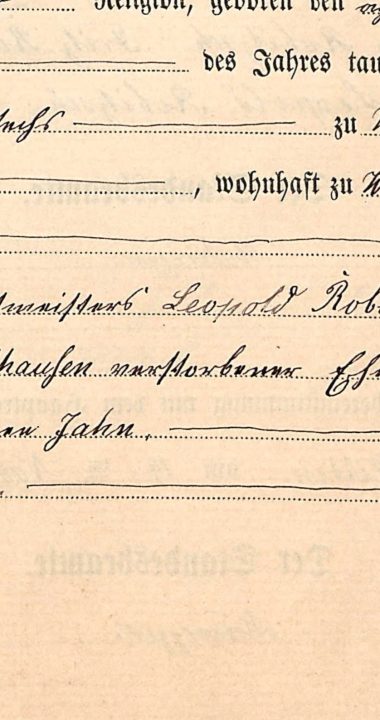 Religion, geboren den
des Jahres tau
sechs zu
, wohnhaft zu
tmeisters Leopold Rob
hausen verstorbener Ehe
en Jahn.
Der Standesbeamte.